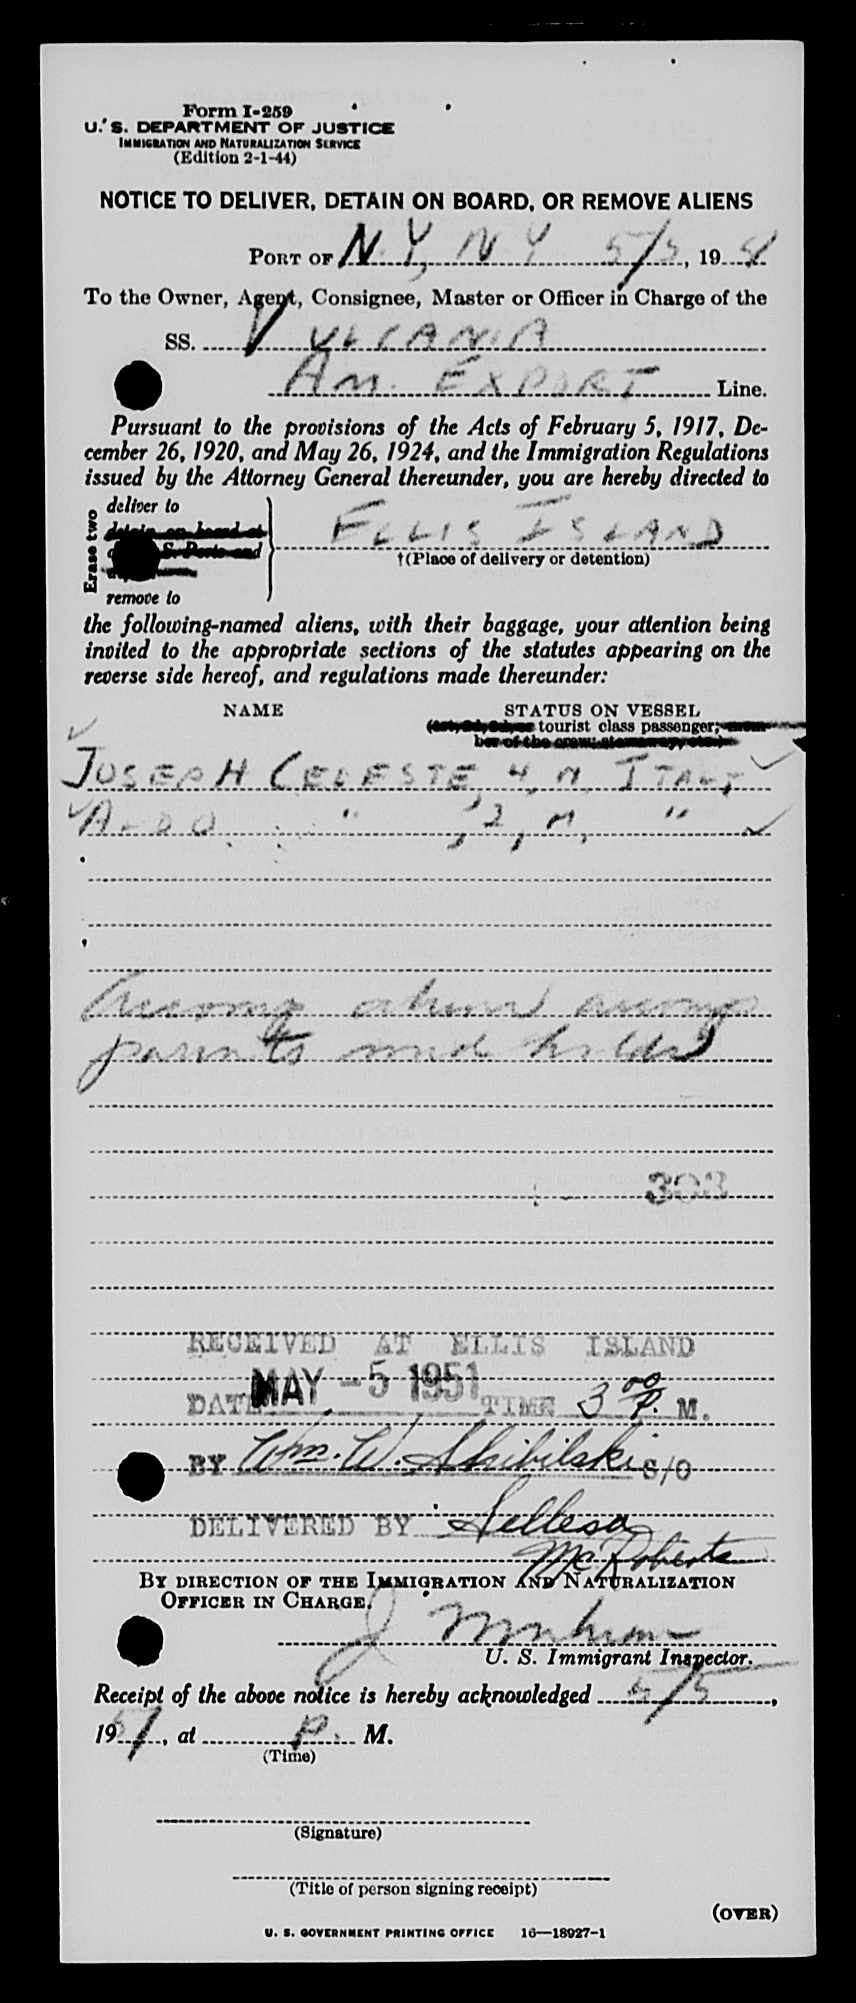 Form I-259
U. S. DEPARTMENT OF JUSTICE
IMMIGRATION AND NATURALIZATION SERVICE
(Edition 2-1-44)
NOTICE TO DELIVER, DETAIN ON BOARD, OR REMOVE ALIENS
PORT OF N.Y, N Y 5/5, 1951
To the Owner, Agent, Consignee, Master or Officer in Charge of the
SS. VULCANIA
AM. EXPORT Line.
Pursuant to the provisions of the Acts of February 5, 1917, De-
cember 26, 1920, and May 26, 1924, and the Immigration Regulations
issued by the Attorney General thereunder, you are hereby directed to
Erase two
deliver to
detain on board at
S. Ports and
remove to
ELLIS ISLAND
†(Place of delivery or detention)
the following-named aliens, with their baggage, your attention being
invited to the appropriate sections of the statutes appearing on the
reverse side hereof, and regulations made thereunder:
NAME STATUS ON VESSEL
tourist class passenger;
ber of the crew; stowaway, etc.)
JOSEPH CELESTE, 4, M, ITALY
ALDO " , 2, M, "
Accomg accomp
parents
303
RECEIVED AT ELLIS ISLAND
DATE MAY -5 1951 TIME 3 00 P. M.
BY Wm. W. Shibilski S/O
DELIVERED BY
McRoberts
BY DIRECTION OF THE IMMIGRATION AND NATURALIZATION
OFFICER IN CHARGE.
J
U. S. Immigrant Inspector.
Receipt of the above notice is hereby acknowledged 5/5,
1951, at P. M.
(Time)
(Signature)
(Title of person signing receipt)
(OVER)
U. S. GOVERNMENT PRINTING OFFICE 16—18927-1